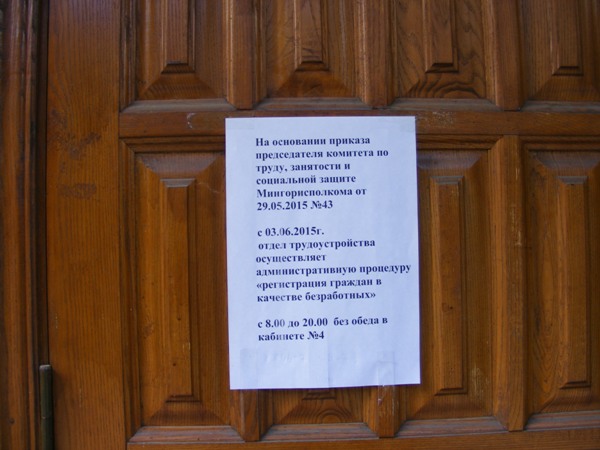 На основании приказа
председателя комитета по
труду, занятости и
социальной защите
Мингорисполкома от
29.05.2015 №43
с 03.06.2015г.
отдел трудоустройства
осуществляет
административную процедуру
«регистрация граждан в
качестве безработных»
с 8.00 до 20.00 без обеда в
кабинете №4